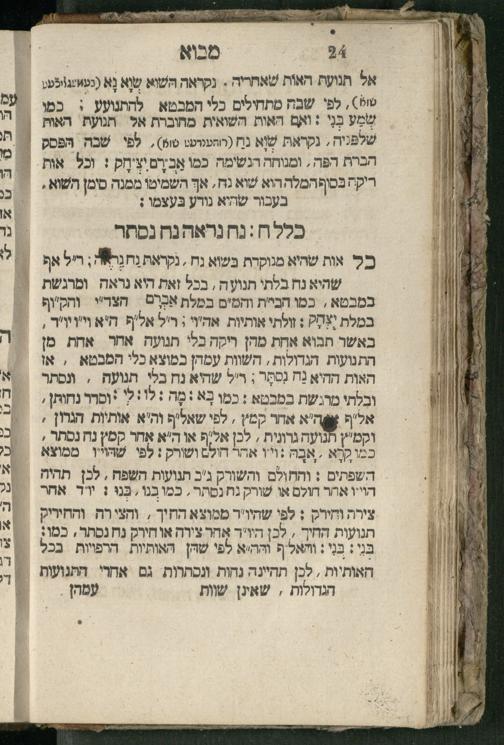 24
מבוא
אל תנועת האות שאחריה. נקראה השוא שְׁוָא נָא
שווא), לפי שבה מתחילים כלי המבטא להתנועע; כמו
שְׁמַע בְּנִי: ואם האות השואית מחוברת אל תנועת האות
שלפניה, נקראת שְׁוָא נָח (רוהענדעס שווא), לפי שבה הפסק
הברת הפה, ומנוחת הנשימה כמו אַבְרָם יִצְחָק: וכל אות
ריקה בסוף המלה הוא שוא נח, אך השמיטו ממנה סימן השוא,
בעבור שהיא נודע בעצמו:
כלל ח: נח נראה נח נסתר
כל אות שהיא מנוקדת בשוא נח, נקראת נַח נִרְאֶה; ר״ל אף
שהיא נח בלתי תנועה, בכל זאת היא נראה ומרגשת
במבטא, כמו הבי״ת והמ״ם במלת אַבְרָם הצד״י והקו״ף
במלת יִצְחָק: זולתי אותיות אהו״י; ר״ל אל״ף ה״א וי״ו יו״ד,
באשר תבוא אחת מהן ריקה בלי תנועה אחר אחת מן
התנועות הגדולות, השוות עמהן במוצא כלי המבטא, אז
האות ההיא נַח נִסְתָּר; ר״ל שהיא נח בלי תנועה, ונסתר
ובלתי מרגשת במבטא: כמו בָא: מָה: לוֹ: לִי: וסדר נחותן,
אל״ף או ה״א אחר קמץ, לפי שאל״ף וה״א אותיות הגרון,
וקמ״ץ תנועה גרונית, לכן אל״ף או ה״א אחר קמץ נח נסתר,
כמו קָרָא, אָבָה: וי״ו אחר חולם ושורק: לפי שהוי״ו ממוצא
השפתים: והחולם והשורק ג״כ תנועות השפה, לכן תהיה
הוי״ו אחר חולם או שורק נח נסתר, כמו בֹנוּ, בָּנוּ: יו״ד אחר
צירה וחירק: לפי שהיו״ד ממוצא החיך, והצירה והחיריק
תנועות החיך, לכן היו״ד אחר צירה או חירק נח נסתר, כמו:
בְּנֵי: בְּנִי: והאל״ף וההא לפי שהן האותיות הרפויות בכל
האותיות, לכן תהיינה נחות ונסתרות גם אחרי התנועות
הגדולות, שאינן שוות
עמהן